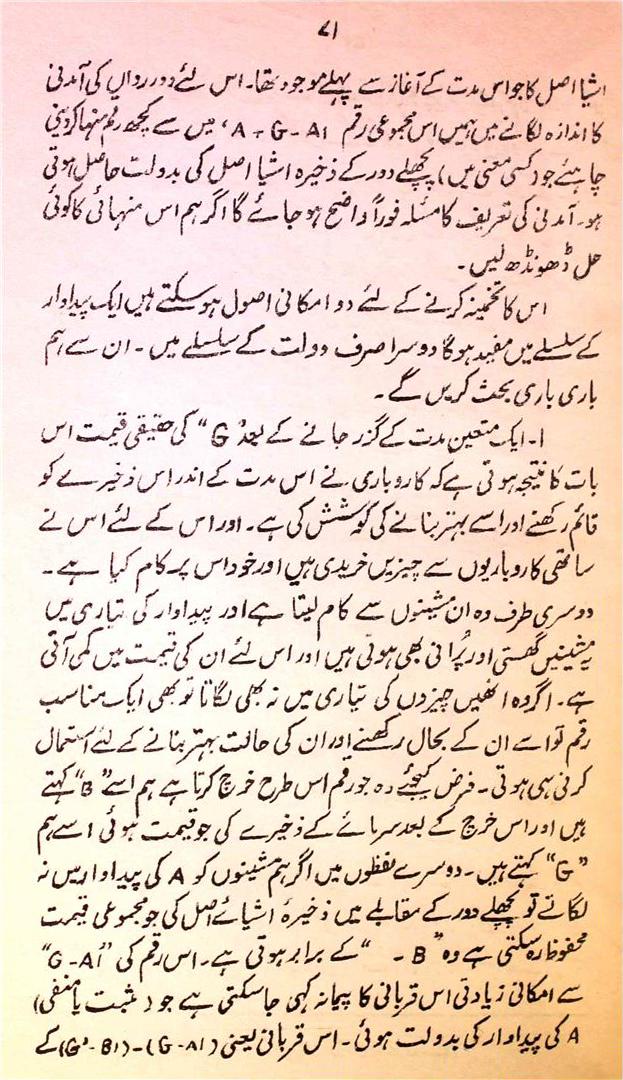 ۷۱
اشیا اصل کا جو اس مدت کے آغاز سے پہلے موجود تھا۔ اس لئے دور رداں کی آمدنی
کا اندازہ لگانے میں ہمیں اس مجموعی رقم A + G - A1 ، میں سے کچھ رقم منہا کر دینی
چاہئے جو (کسی معنی میں) پچھلے دور کے ذخیرہ اشیا اصل کی بدولت حاصل ہوتی
ہو۔ آمدنی کی تعریف کا مسئلہ فوراً واضح ہو جائے گا اگر ہم اس منہائی کا کوئی
حل ڈھونڈھ لیں۔
اس کا تخمینہ کرنے کے لئے دو امکانی اصول ہو سکتے ہیں ایک پیداوار
کے سلسلے میں مفید ہوگا دوسرا صرف دولت کے سلسلے میں۔ ان سے ہم
باری باری بحث کریں گے۔
۱۔ ایک متعین مدت کے گزر جانے کے بعد "G" کی حقیقی قیمت اس
بات کا نتیجہ ہوتی ہے کہ کاروباری نے اس مدت کے اندر اس ذخیرے کو
قائم رکھنے اور اسے بہتر بنانے کی کوشش کی ہے۔ اور اس کے لئے اس نے
ساتھی کاروباریوں سے چیزیں خریدی ہیں اور خود اس پر کام کیا ہے۔
دوسری طرف وہ ان مشینوں سے کام لیتا ہے اور پیداوار کی تیاری میں
یہ مشینیں گھستی اور پُرانی بھی ہوتی ہیں اور اس لئے ان کی قیمت میں کمی آتی
ہے۔ اگر وہ انھیں چیزوں کی تیاری میں نہ بھی لگاتا تو بھی ایک مناسب
رقم تو اسے ان کے بحال رکھنے اور ان کی حالت بہتر بنانے کے لئے استعمال
کرنی ہی ہوتی۔ فرض کیجئے وہ جو رقم اس طرح خرچ کرتا ہے ہم اسے "B" کہتے
ہیں اور اس خرچ کے بعد سرمائے کے ذخیرے کی جو قیمت ہوئی اسے ہم
"G" کہتے ہیں۔ دوسرے لفظوں میں اگر ہم مشینوں کو A کی پیداوار میں نہ
لگاتے تو پچھلے دور کے مقابلے میں ذخیرۂ اشیائے اصل کی جو مجموعی قیمت
محفوظ رہ سکتی ہے وہ " B - " کے برابر ہوتی ہے۔ اس رقم کی "G - A1"
سے امکانی زیادتی اس قربانی کا پیمانہ کہی جا سکتی ہے جو (مثبت یا منفی)
A کی پیداوار کی بدولت ہوئی۔ اس قربانی یعنی (G' - B1) - (G - A1) کے